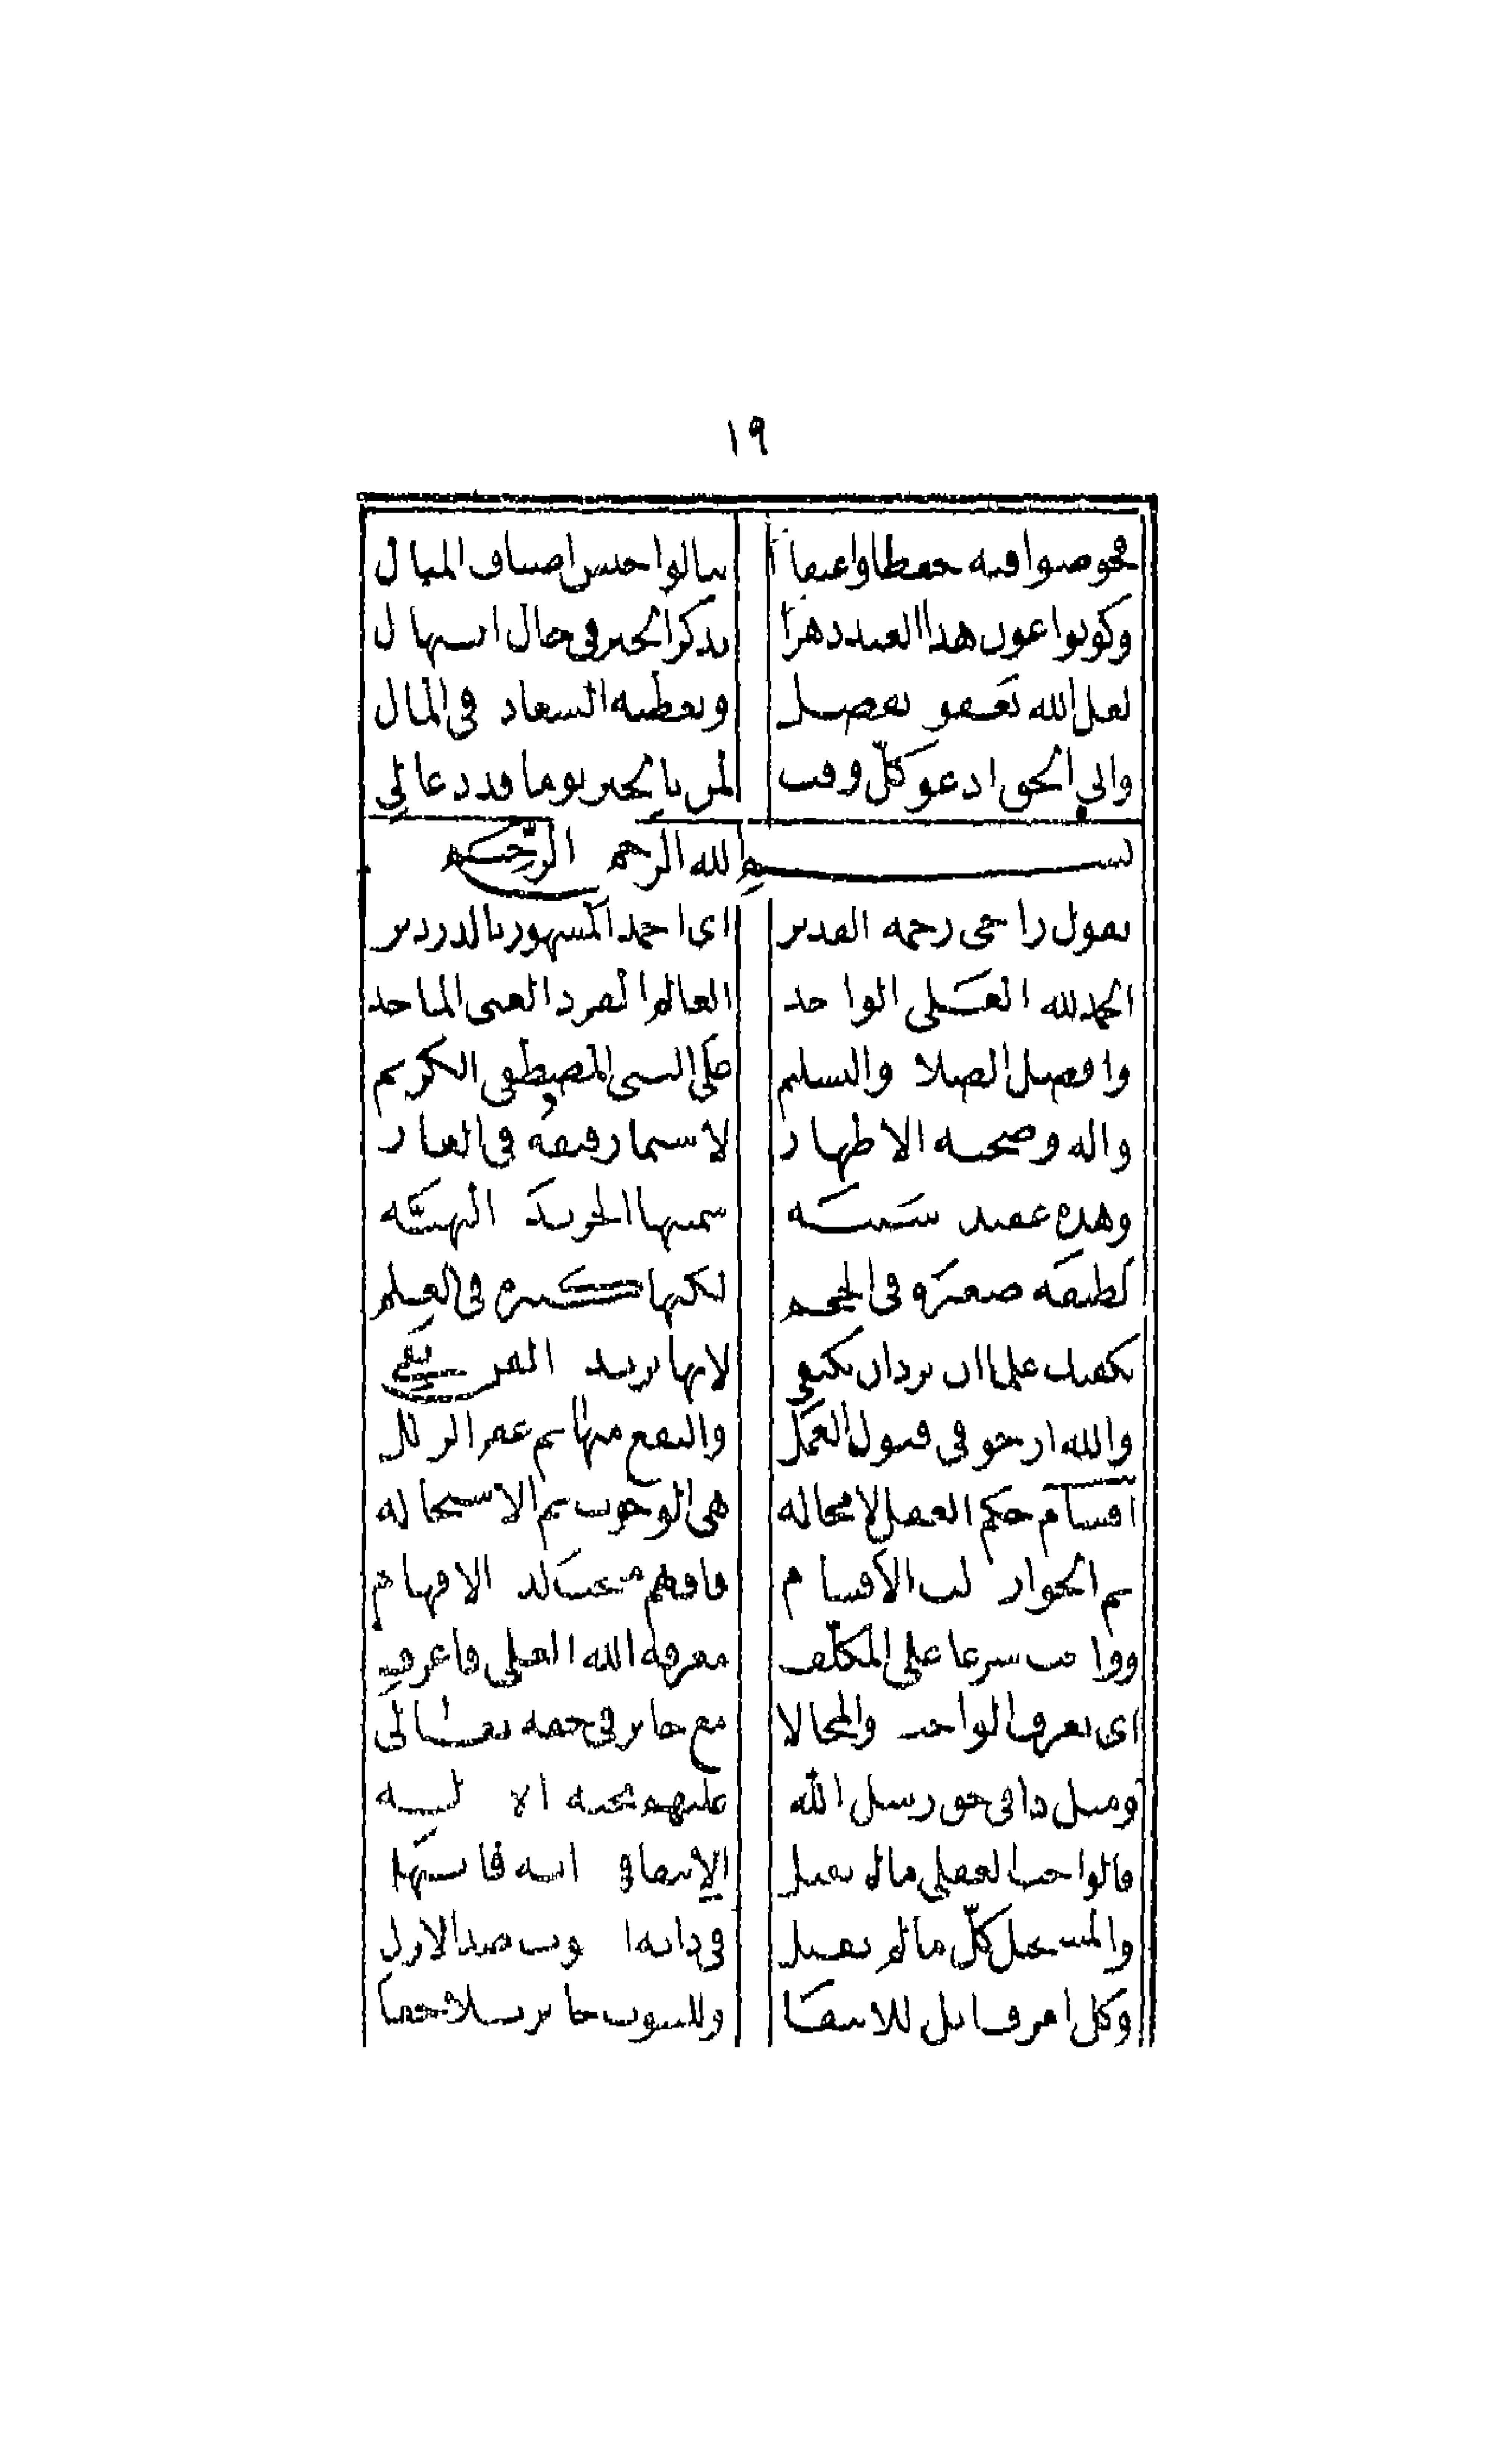 ١٩
فخوضوا فيه حفظا واعتقادا تنالوا جنس اصناف المنال
وكونوا عون هذا العبد دهرا بذكر الخير في حال ابتهال
لعل الله يعفو بفضل ويعطيه السعادة في المآل
واني الحق ادعو كلّ وقت لمن بالخير يوما قد دعا لي
بسم الله الرحمن الرّحيم
يقول راجي رحمة القدير اي احمد المشهور بالدردير
الحمد لله العلي الواحد العالم الفرد الغني الماجد
وافضل الصلاة والتسليم على النبي المصطفى الكريم
واله وصحبه الاطهار لا سيما رفيقه في الغار
وهذه عقيدة سنيه سميتها الخريدة البهيّه
لطيفة صغيرة في الحجم لكنها كبيرة في العلم
تكفيك علما ان ترد ان تكتفي لانها بزبدة الفن تفي
والله ارجو في قبول العمل والنفع منها ثم غفر الزلل
اقسام حكم العقل لا محاله هي الوجوب ثم الاستحاله
ثم الجواز ثالث الاقسام فافهم منحت لذة الافهام
وواجب شرعا على المكلّف معرفة الله العلي فاعرف
اي يعرف الواجب والمحالا مع جائز في حقه تعالى
ومثل ذا في حق رسل الله عليهم تحية الاله
فالواجب العقلي ما لم يقبل الانتفا في ذاته فابتهل
والمستحيل كلّ ما لم يقبل في ذاته الثبوت ضد الاول
وكل امر قابل للانتفا وللثبوت جائز بلا خفا